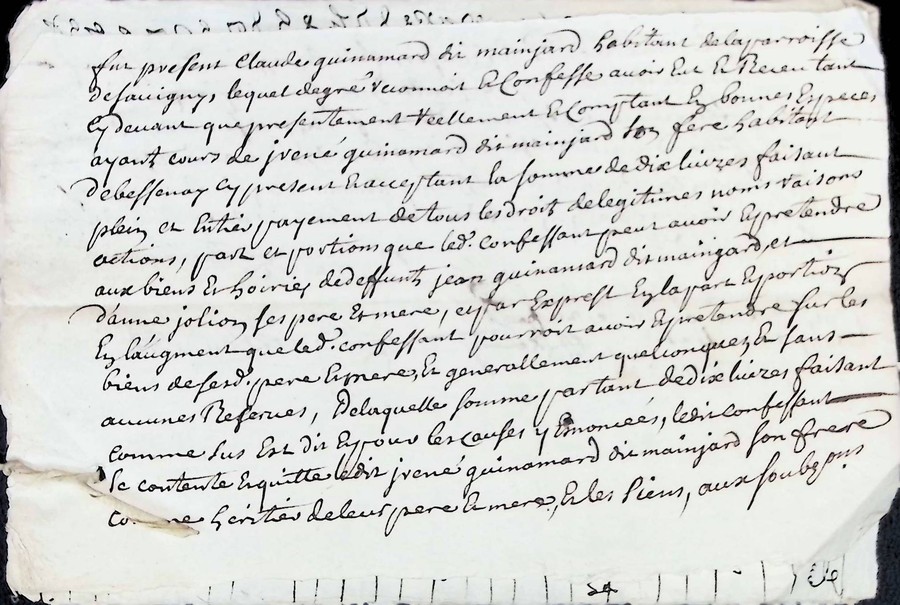 fut present Claude guinamard dit mainjard habitant de la parroisse
de savigny, lequel de gré reconnoit & Confesse avoir Eut & Receu tant
Cy devant que presentement reellement & Comptant En bonnes Especes
ayant cours de jrené guinamard dit mainjard son frere habitant
de bessenay cy present & acceptant la somme de dix livres faisant
plein et Entier payement de tous les droit de legitimes noms raisons
actions, part et portions que led. confessant peut avoir & pretendre
aux biens Et hoiries de deffunt jean guinamard dit maingard, et
d'anne jolion ses pere Et mere, et par Exprest En la part & portion
En l'augment que led. confessant pourroit avoir & pretendre sur les
biens de sesd. pere & mere, Et generallement quelconques Et sans
aucunes Reserves, De laquelle somme partant de dix livres faisant
comme sus Est dit Et pour les causes y Enoncées, ledit confessant
se contente & quitte ledit jrené guinamard dit mainjard son frere
comme héritier de leur pere & mere, & les siens, aux soubz